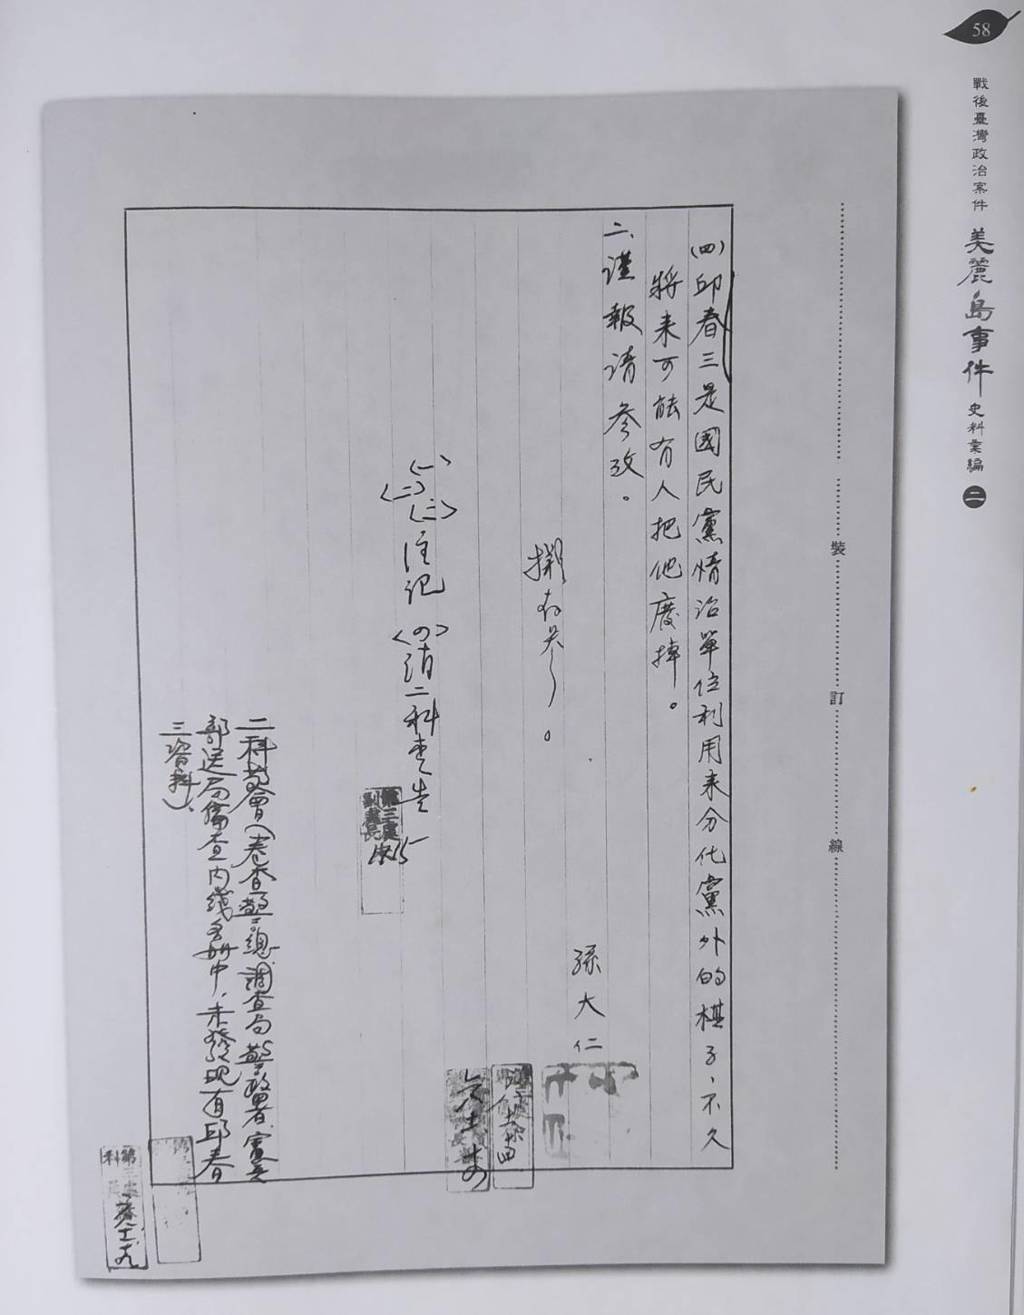 58
戰後臺灣政治案件 美麗島事件 史料彙編 二
裝 訂 線
(四)邱春三是國民黨情治單位利用來分化黨外的棋子、不久
將來可能有人把他廢掉。
二、謹報請參攷。
孫大仁
擬存參。
(一)
(二)
(三)
注記
請二科查告
第三處
副處長
二科敬會(卷查警總、調查局、警政署、憲兵
部送局偏查內線名册中,未發現有邱春
三資料)、
第三處
科